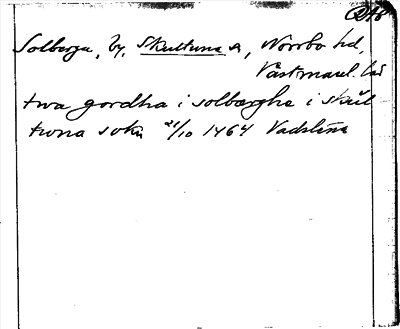 Solberga, by, Skultuna sn, Norrbo hd,
Västmanl. län
twa gordha i solbærghe i skul
tuna sokn 21/10 1464 Vadstena